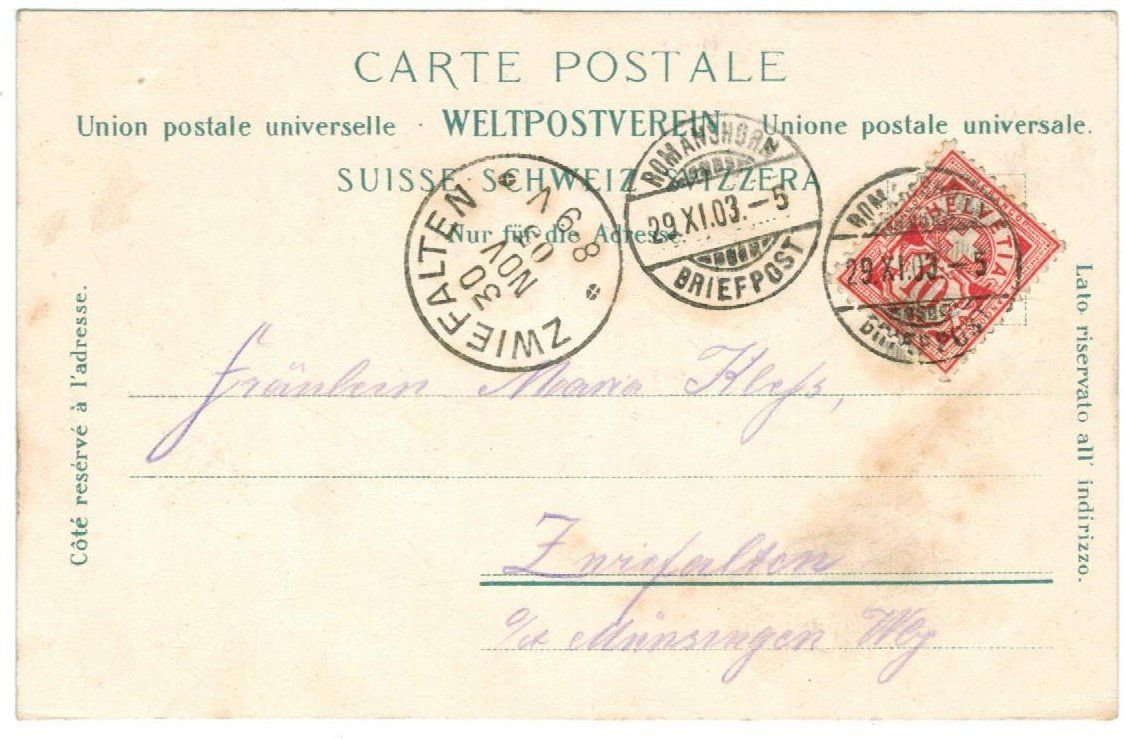 CARTE POSTALE
Union postale universelle · WELTPOSTVEREIN · Unione postale universale.
SUISSE SCHWEIZ SVIZZERA
Nur für die Adresse.
ZWIEFALTEN
30
NOV
03
V
6-8
ROMANSHORN
29.XI.03.-5
BRIEFPOST
ROMANSHORN
29.XI.03.-5
BRIEFPOST
HELVETIA
10
Côté resérvé à l'adresse.
Lato riservato all' indirizzo.
Fräulein Maria
Zwiefalten
Münsingen